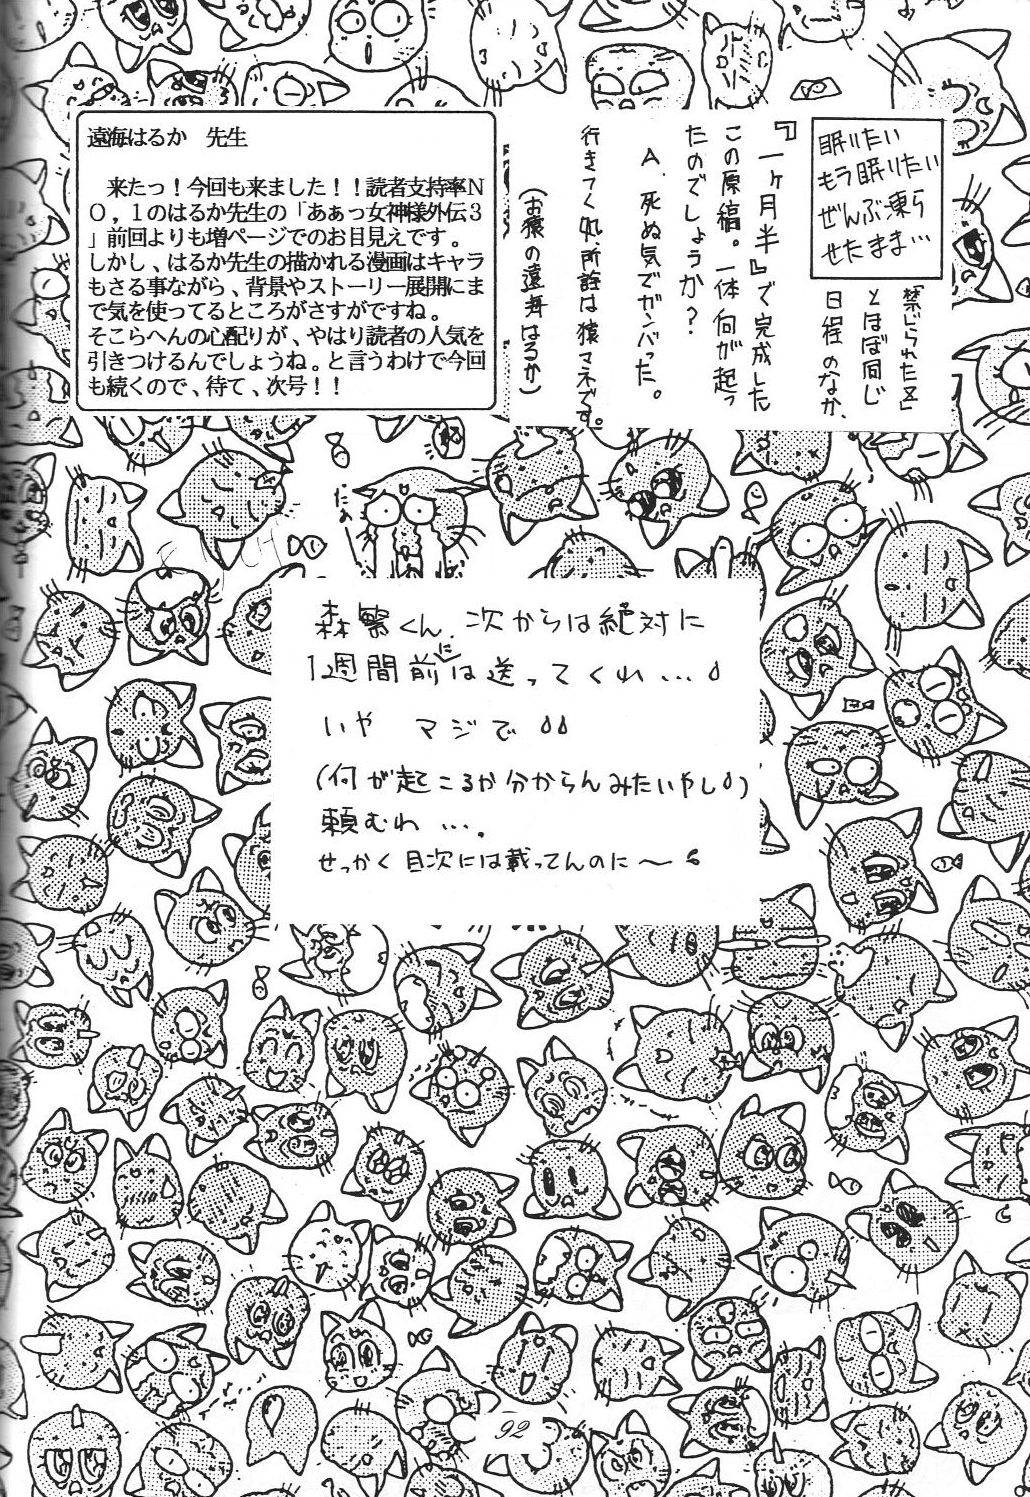 遠海はるか　先生
　来たっ！今回も来ました！！読者支持率N
O，1のはるか先生の「あぁっ女神様外伝3
」前回よりも増ページでのお目見えです。
しかし、はるか先生の描かれる漫画はキャラ
もさる事ながら、背景やストーリー展開にま
で気を使ってるところがさすがですね。
そこらへんの心配りが、やはり読者の人気を
引きつけるんでしょうね。と言うわけで今回
も続くので、待て、次号！！
眠りたい
もう眠りたい
ぜんぶ凍ら
せたまま…
「禁じられた区」
とほぼ同じ
日程のなか、
『一ヶ月半』で完成した
この原稿。一体何が起っ
たのでしょうか？
A．死ぬ気でガンバった。
行きつく処所詮は猿マネです。
（お猿の遠海はるか）
森繁くん、次からは絶対に
1週間前には送ってくれ…
いや　マジで
（何が起こるか分からんみたいやし）
頼むわ…。
せっかく目次には載ってんのに〜
92